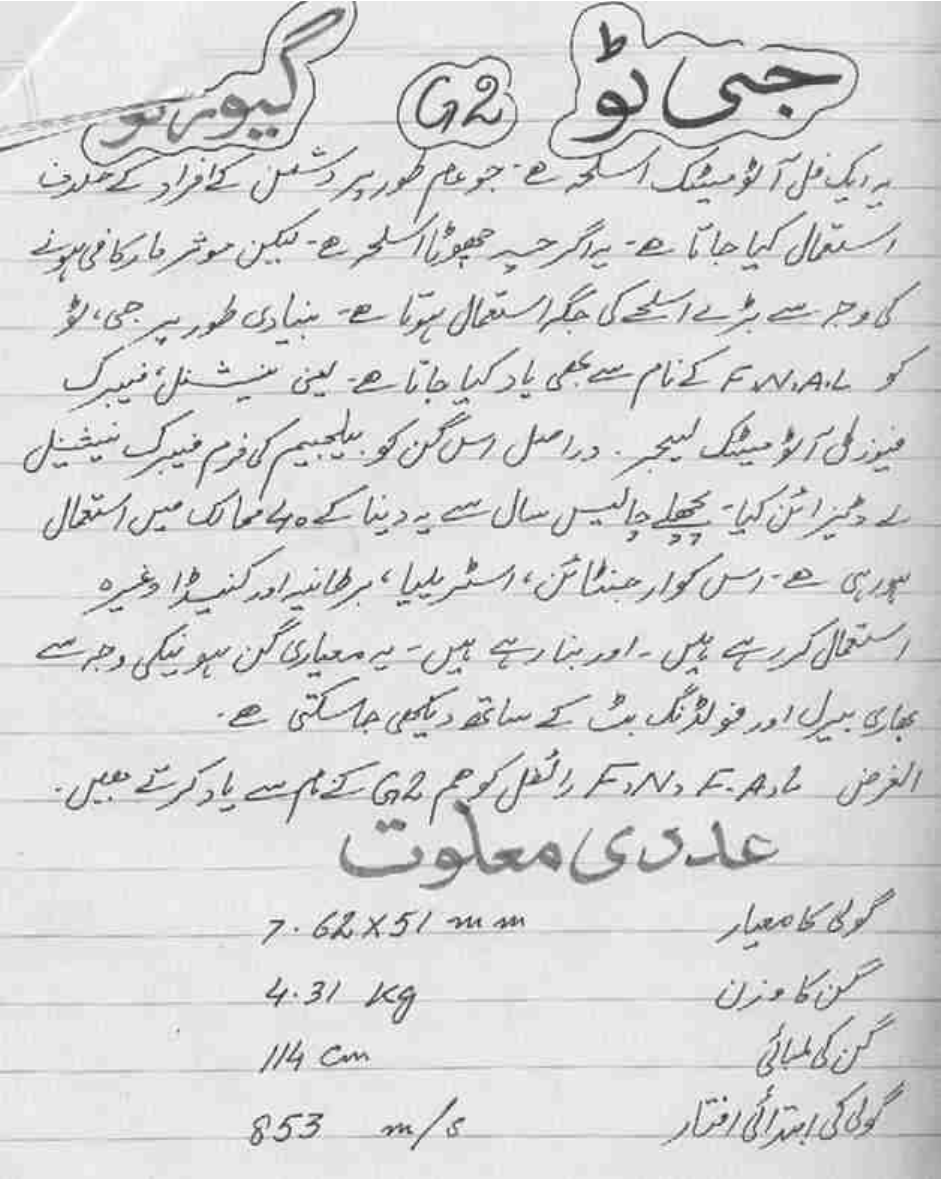 جی ٹو G2 گیوہرٹو
یہ ایک فل آٹو میٹک اسلحہ ہے۔ جو عام طور پر دشمن کے افراد کے خلاف
استعمال کیا جاتا ہے۔ یہ اگر چہ چھوٹا اسلحہ ہے۔ لیکن موثر مار کافی ہونے
کی وجہ سے بڑے اسلحے کی جگہ استعمال ہوتا ہے۔ بنیادی طور پر جی، ٹو
کو F.N.A.L کے نام سے بھی یاد کیا جاتا ہے۔ یعنی نیشنل، فیبرک
فیوزلی آٹو میٹک لیجر۔ دراصل اس گن کو بیلجیم کی فرم فیبرک نیشنیل
نے ڈیزائن کیا۔ پچھلے چالیس سال سے یہ دینا کے ۴۰ ممالک میں استعمال
ہورہی ہے۔ اس کو ارجنٹائن، اسٹریلیا، برطانیہ اور کنیڈا وغیرہ
استعمال کر رہے ہیں۔ اور بنا رہے ہیں۔ یہ معیاری گن ہونیکی وجہ سے
بھاری بیرل اور فولڈنگ بٹ کے ساتھ دیکھی جاسکتی ہے۔
الغرض F.N.F.A.L رائفل کو ہم G2 کے نام سے یاد کرتے ہیں۔
عددی معلوت
گولی کا معیار 7.62X51 mm
گن کا وزن 4.31 kg
گن کی لمبائی 114 cm
گولی کی ابتدائی افتار 853 m/s